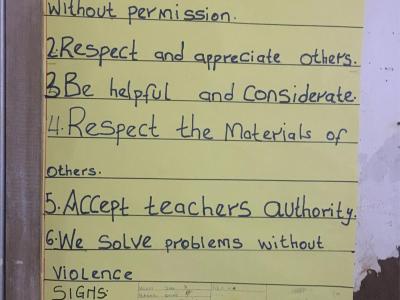 without permission.
2.Respect and appreciate others.
3.Be helpful and considerate.
4.Respect the Materials of
others.
5.Accept teachers authority.
6.We solve problems without
violence
SIGNS: